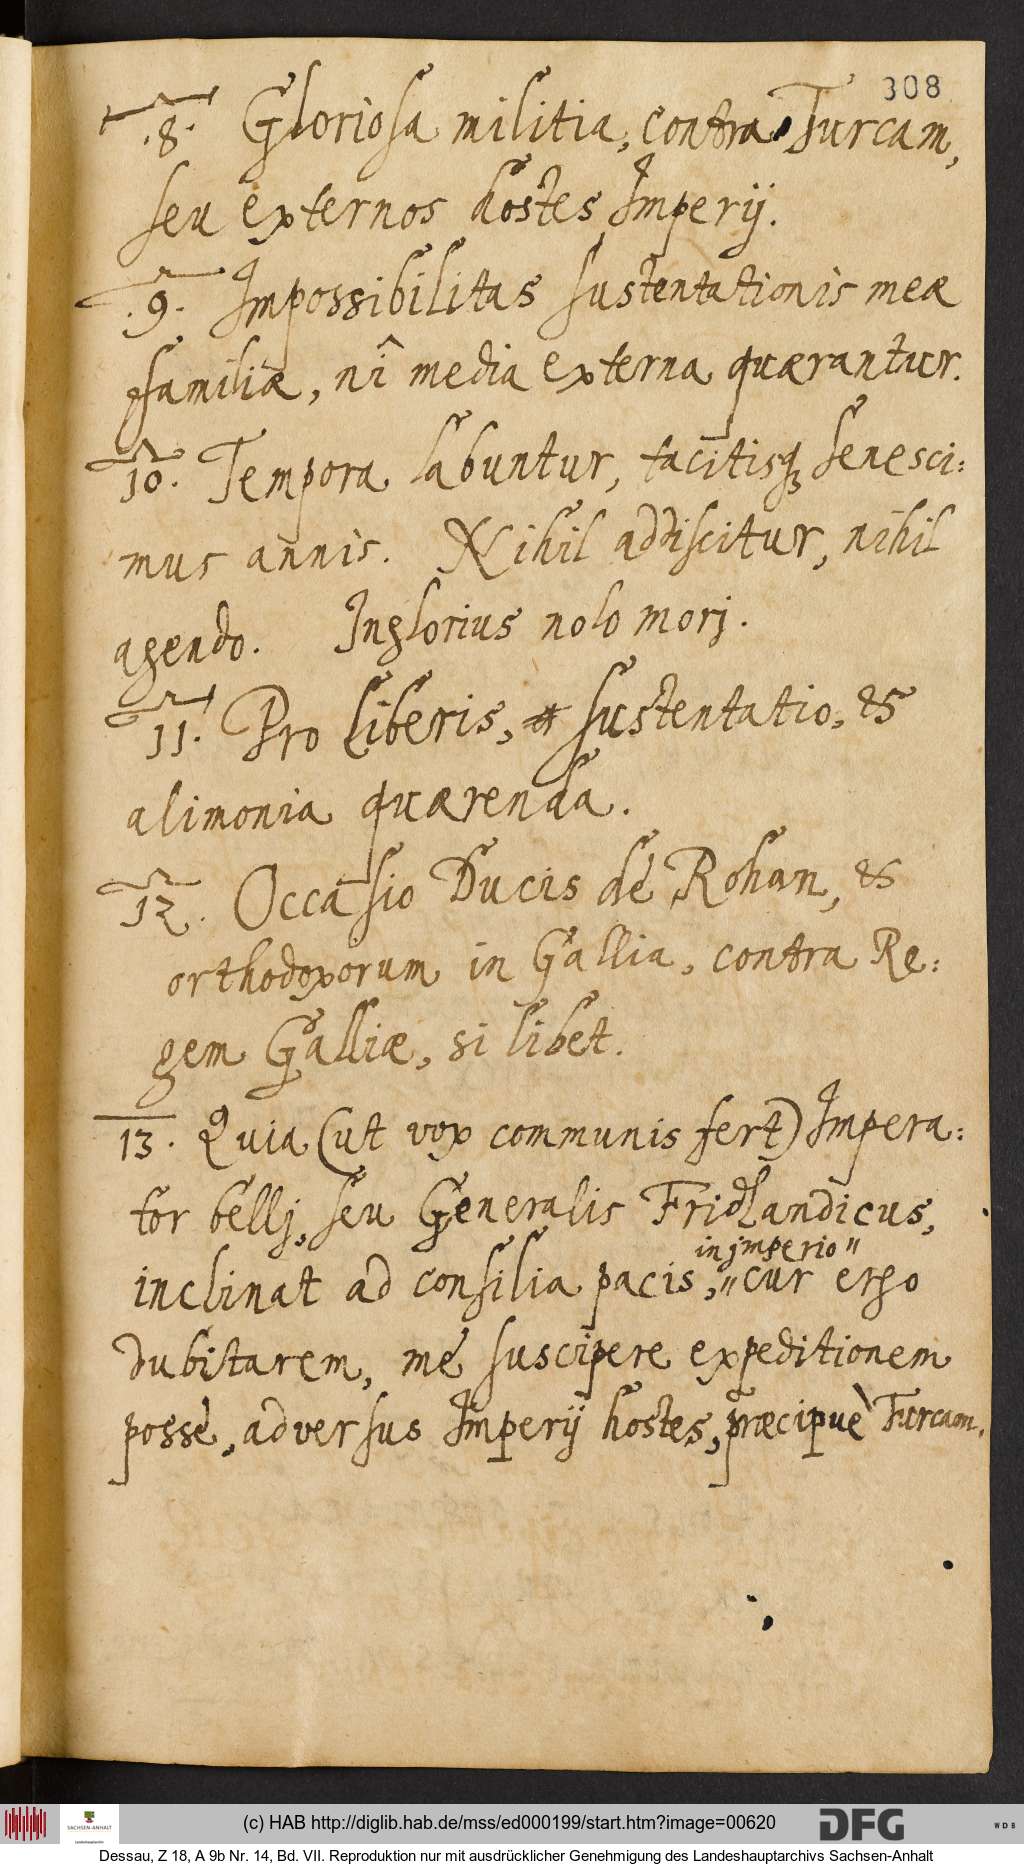 308
.8. Gloriosa militia, contra Turcam,
seu externos hostes Imperij.
.9. Impossibilitas sustentationis meæ
familiæ, nî media externa quærantur.
10. Tempora labuntur, tacitisq₃ senesci:
mus annis. Nihil addiscitur, nihil
agendo. Inglorius nolo morj.
11. Pro liberis, sustentatio, &
alimonia quærenda.
12. Occasio Ducis de Rohan, &
orthodoxorum in Gallia, contra Re:
gem Galliæ, si libet.
13. Quia (ut vox communis fert) Impera:
tor bellj, seu Generalis Fridlandicus,
in jmperio"
inclinat ad consilia pacis, " cur ergo
dubitarem, me suscipere expeditionem
posse, adversus Imperij hostes, præcipuè Turcam.
SACHSEN-ANHALT
Landeshauptarchiv
(c) HAB http://diglib.hab.de/mss/ed000199/start.htm?image=00620
DFG
WDB
Dessau, Z 18, A 9b Nr. 14, Bd. VII. Reproduktion nur mit ausdrücklicher Genehmigung des Landeshauptarchivs Sachsen-Anhalt